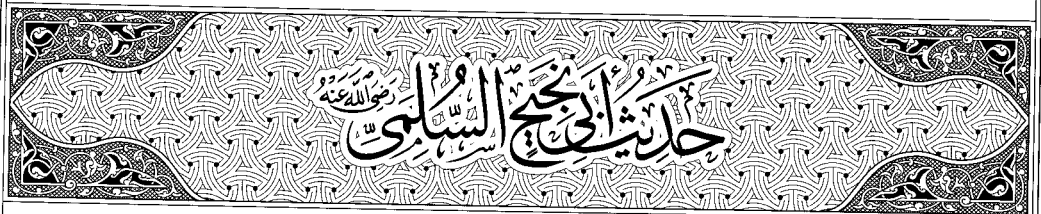 حَدِيثُ أَبِي نَجِيحٍ السُّلَمِيِّ رَضِيَ اللَّهُ عَنْهُ